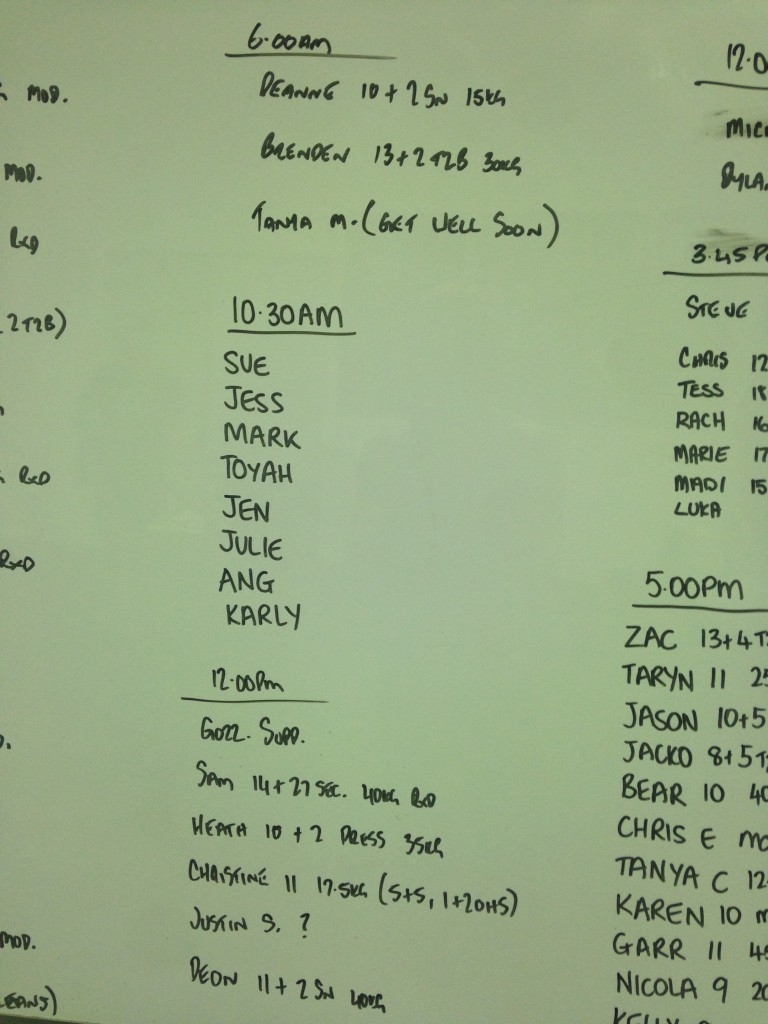 MOD.
MOD.
RXD
2T2B)
RXD
RXD
MOD.
6.00AM
DEANNE 10+2SN 15KG
BRENDEN 13+2T2B 30KG
TANYA M. (GET WELL SOON)
10.30AM
SUE
JESS
MARK
TOYAH
JEN
JULIE
ANG
KARLY
12.00PM
GOZZ. SUPP.
SAM 14+27SEC. 40KG RXD
HEATH 10+2 PRESS 35KG
CHRISTINE 11 17.5KG (S+S, 1+2OHS)
JUSTIN S. ?
DEON 11+2SN 40KG
12.0
MIC
DYLA
3.45P
STEVE
CHRIS 12
TESS 18
RACH 16
MARIE 17
MADI 15
LUKA
5.00PM
ZAC 13+4T
TARYN 11 25
JASON 10+5
JACKO 8+5T
BEAR 10 40
CHRIS E MO
TANYA C 12.
KAREN 10 M
GARR 11 45
NICOLA 9 20
KELLY